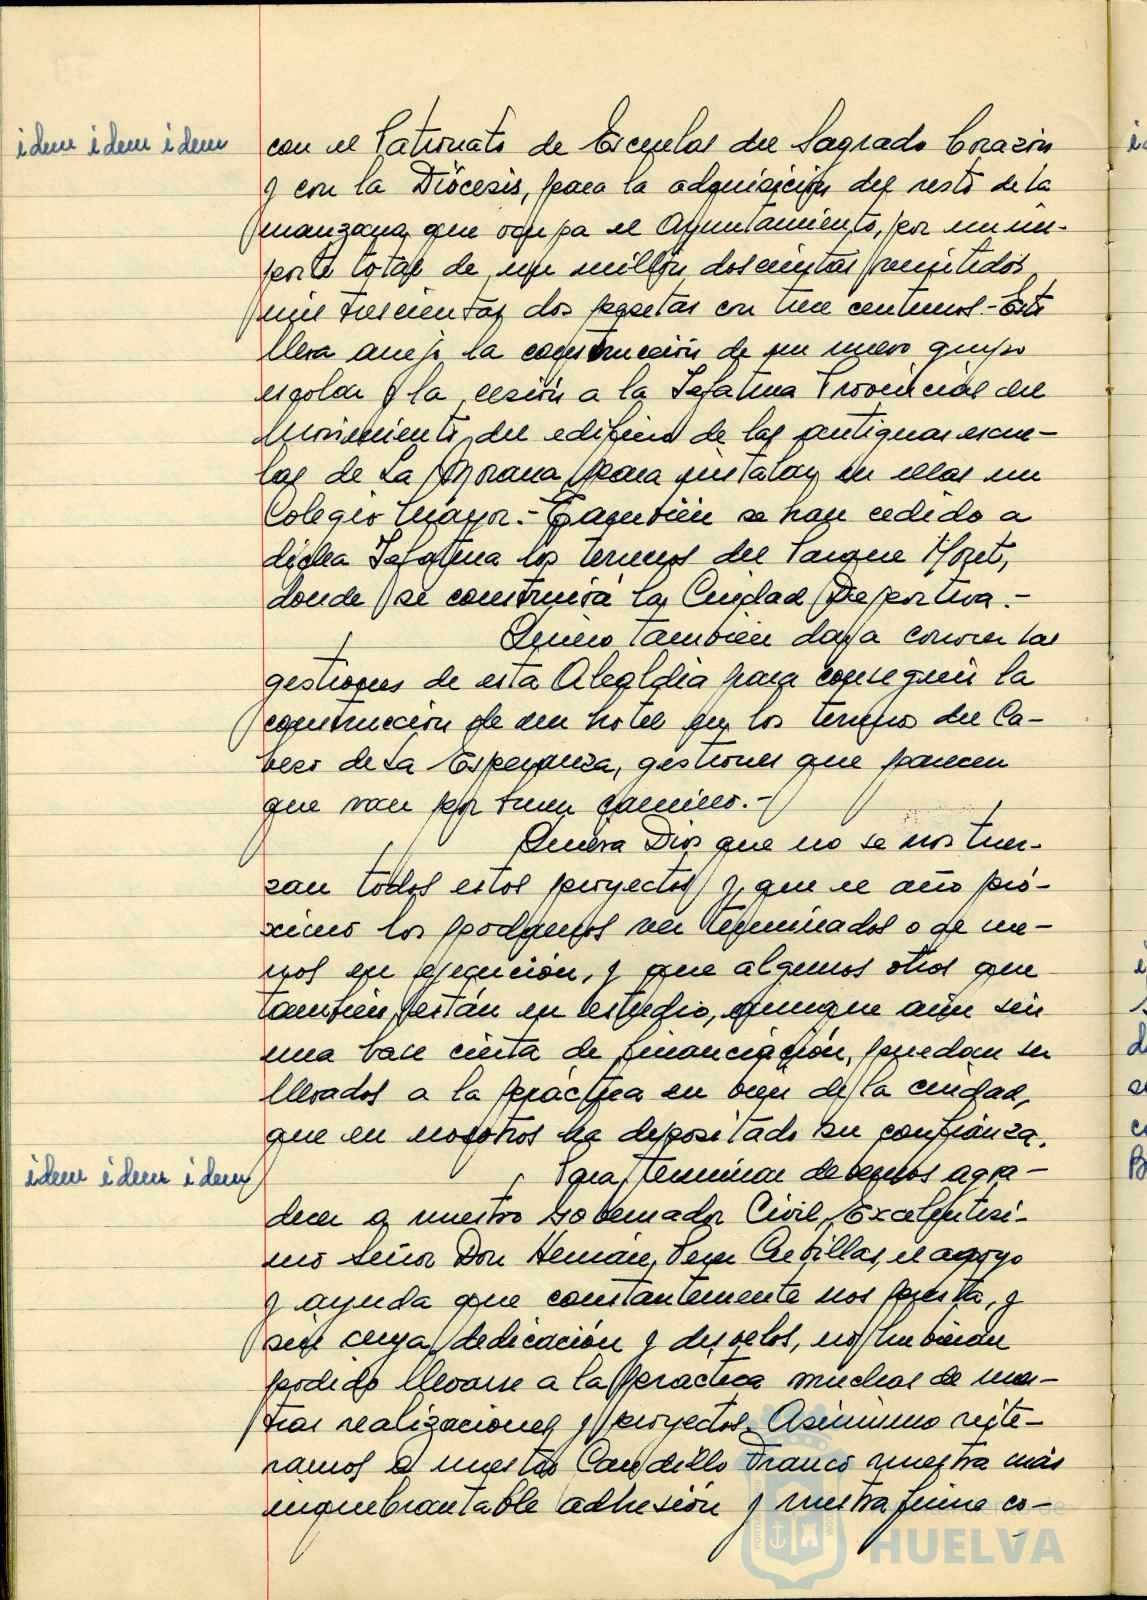 idem idem idem
con el Patronato de Escuelas del Sagrado Corazón
y con la Diócesis, para la adquisición del resto de la
manzana que ocupa el Ayuntamiento, por un im-
porte total de un millón doscientas veintidos
mil trescientas dos pesetas con trece centimos.- Esto
lleva anejo la construcción de un nuevo grupo
escolar y la cesión a la Jefatura Provincial del
Movimiento, del edificio de las antiguas escue-
las de La Morana para instalar en ellas un
Colegio Mayor.- También se han cedido a
dicha Jefatura los terrenos del Parque Moret,
donde se construirá la Ciudad Deportiva.-
Quiero también dar a conocer las
gestiones de esta Alcaldía para conseguir la
construcción de un hotel en los terrenos del Ca-
bezo de La Esperanza, gestiones que parecen
que van por buen camino.-
Quiera Dios que no se nos tuer-
zan todos estos proyectos y que el año pró-
ximo los podamos ver terminados o al me-
nos en ejecución, y que algunos otros que
también están en estudio, aunque aún sin
una base cierta de financiación, puedan ser
llevados a la práctica en bien de la ciudad,
que en nosotros ha depositado su confianza.
idem idem idem
Para terminar debemos agra-
decer a nuestro Gobernador Civil, Excelentísi-
mo Señor Don Hernán Perez Cubillas, el apoyo
y ayuda que constantemente nos presta, y
sin cuya dedicación y desvelos, no hubieran
podido llevarse a la practica muchas de nues-
tras realizaciones y proyectos. Asimismo reite-
ramos a nuestro Caudillo Franco nuestra más
inquebrantable adhesión y nuestra firme co-
Ayuntamiento de
HUELVA